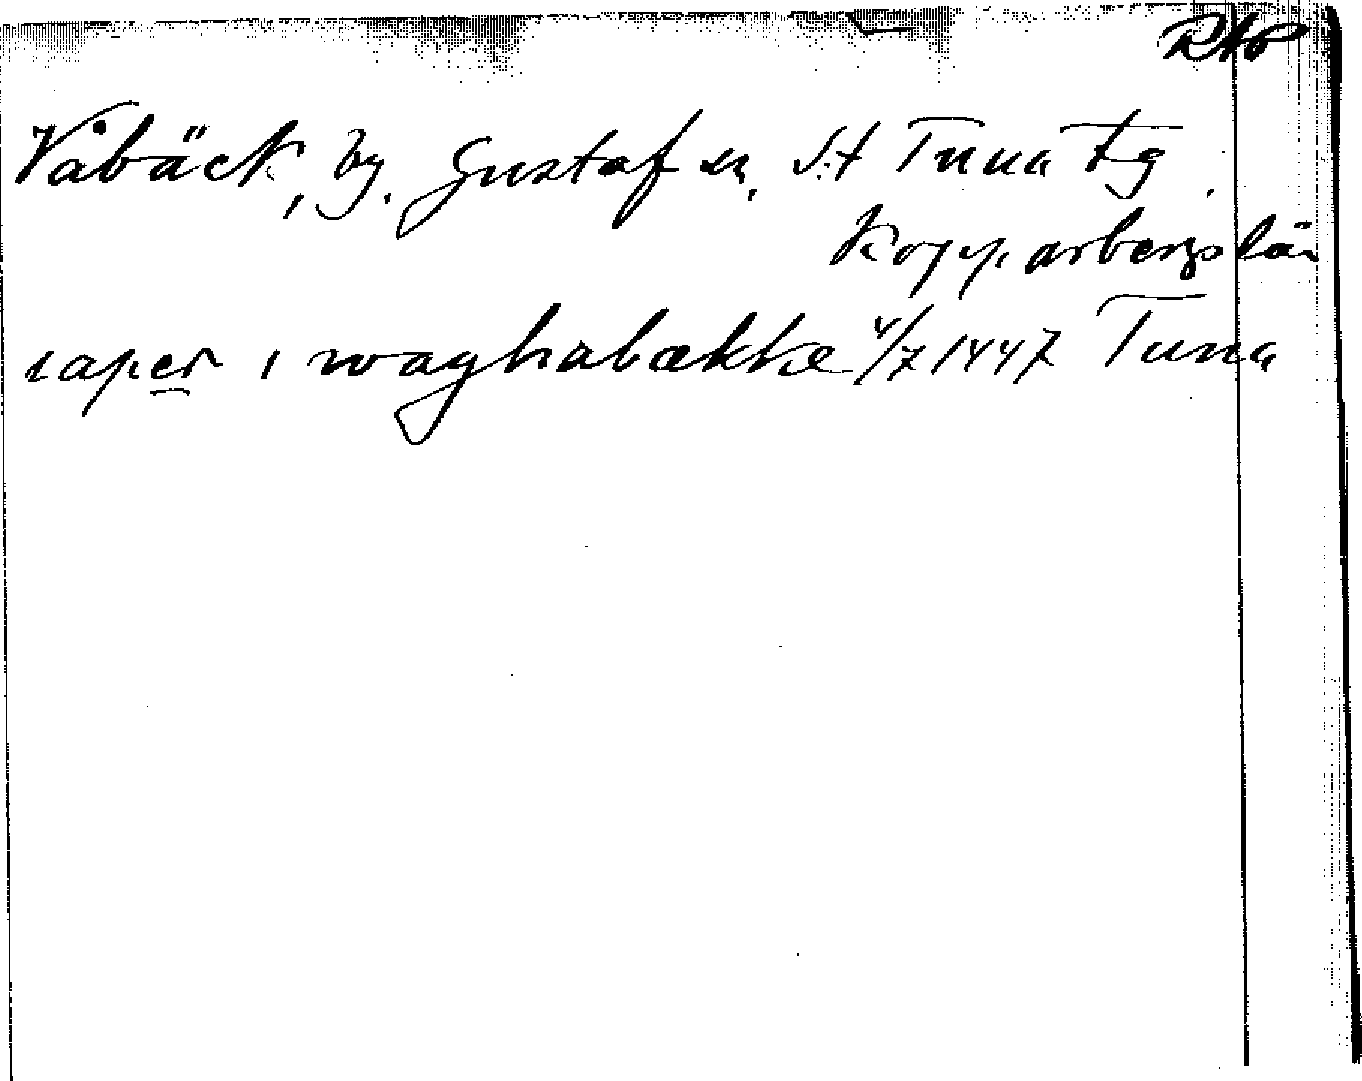 RAP
Våbäck, by. Gustafs sn, St Tuna tg.
Kopparbergs län
iaper i waghabække 4/7 1447 Tuna